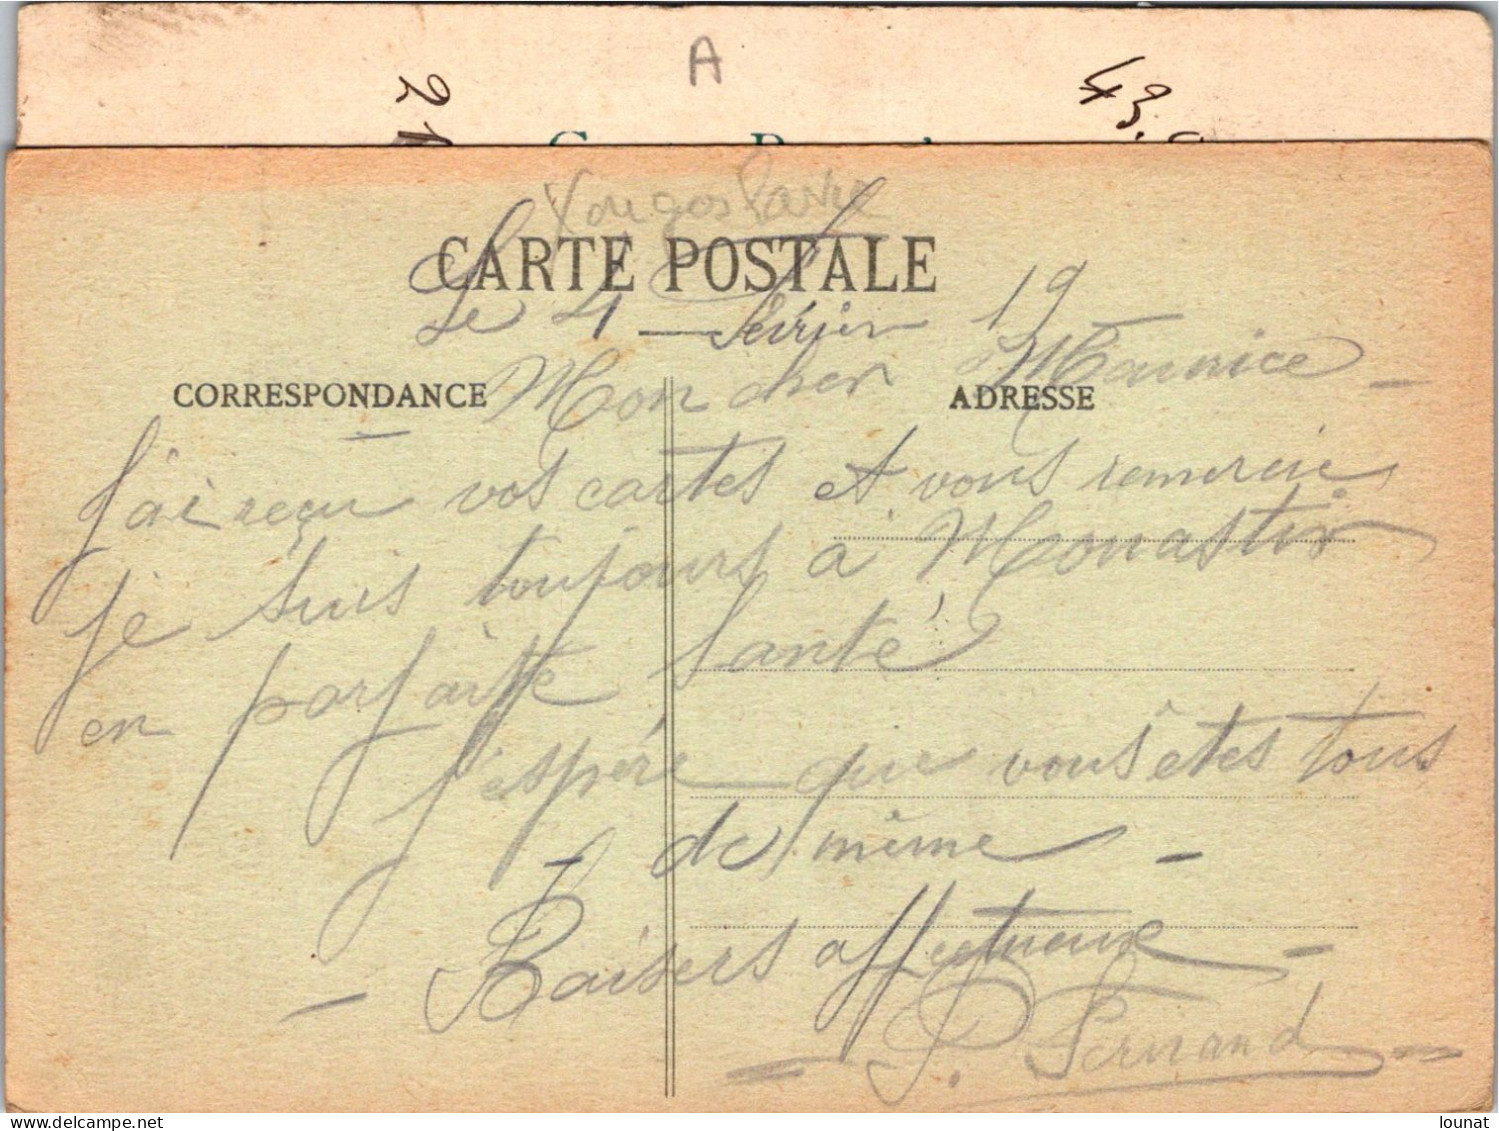 A
21
43.
Yougoslavie
CARTE POSTALE
Le 4 Février 19
Mon cher Maurice
CORRESPONDANCE
ADRESSE
J'ai reçu vos cartes et vous remercie
je suis toujours à Monastir
en parfaite santé
j'espère que vous êtes tous
de même
Baisers affectueux
P. Fernand
delcampe.net
lounat